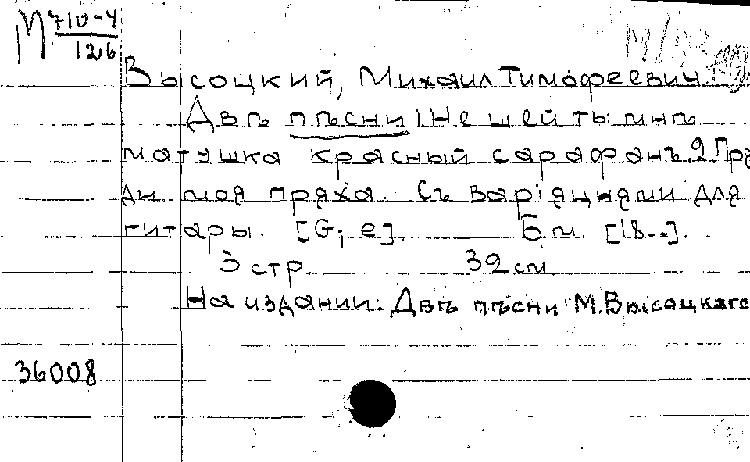 М 710-4
126
Высоцкий, Михаил Тимофеевич.
Двѣ пѣсни 1 Не шей ты мнѣ
матушка красный сарафанъ. 2 Пря
ди моя пряха. Съ варіяціями для
гитары. [G; e]. Б.м. [18--].
3 стр. 32 см
На издании: Двѣ пѣсни М. Высоцкаго
36008